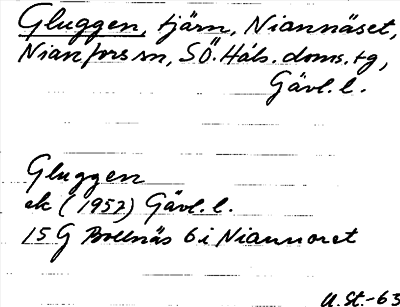 Gluggen, tjärn, Niannäset,
Nianfors sn, SÖ. Häls. doms. tg,
Gävl. l.
Gluggen
ek (1957) Gävl. l.
15G Bollnäs 6i Niannoret
U.St.-63